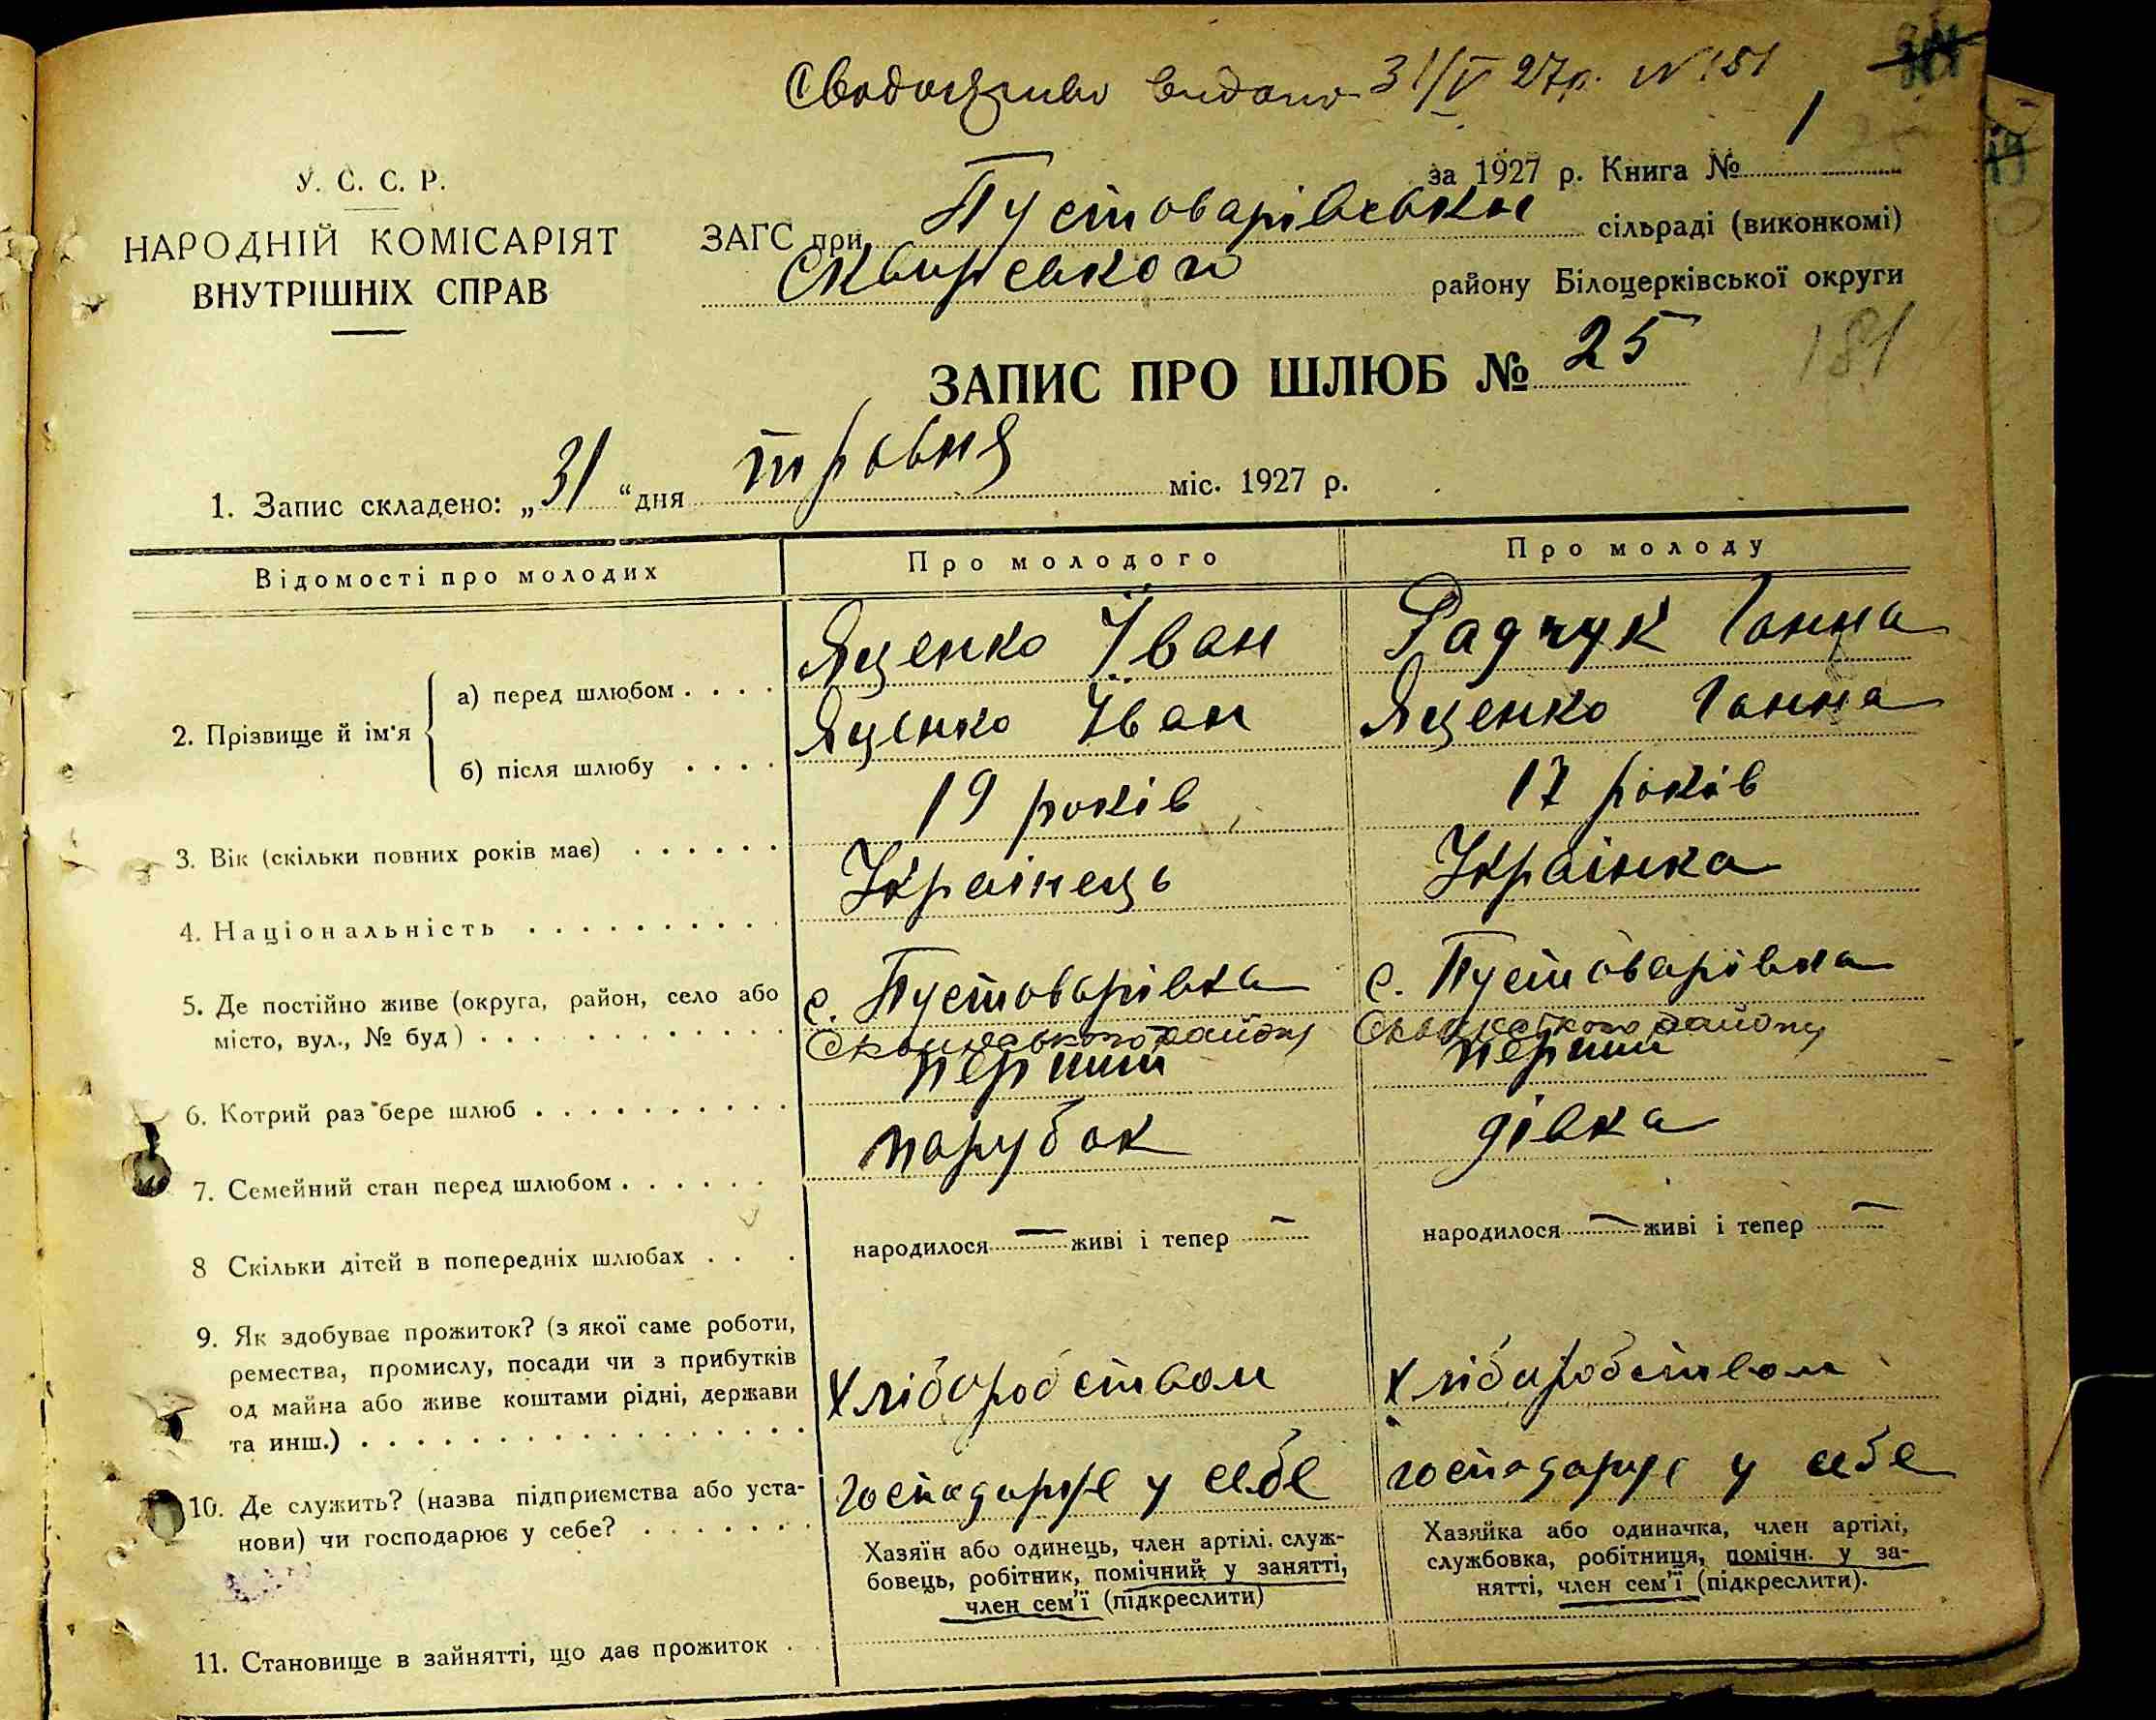 Свідоцтво видано 31/V 27р. N 181
У. С. С. Р.
НАРОДНІЙ КОМІСАРІЯТ
ВНУТРІШНІХ СПРАВ
за 1927 р. Книга № 1
ЗАГС при Пустоварівській сільраді (виконкомі)
Сквирського району Білоцерківської округи
ЗАПИС ПРО ШЛЮБ № 25
181
1. Запис складено: „31“ дня травня міс. 1927 р.
Відомості про молодих Про молодого Про молоду
2. Прізвище й ім'я
а) перед шлюбом . . . . Яценко Їван Радчук Ганна
б) після шлюбу . . . . Яценко Їван Яценко Ганна
3. Вік (скільки повних років має) . . . . . . 19 років 17 років
4. Національність . . . . . . . . . . Українець Українка
5. Де постійно живе (округа, район, село або
місто, вул., № буд) . . . . . . . . . . . .
с. Пустоварівка
Сквирського району
с. Пустоварівка
Сквирського району
6. Котрий раз бере шлюб . . . . . . . . . . перший перший
7. Семейний стан перед шлюбом . . . . . . парубок дівка
8 Скільки дітей в попередніх шлюбах . . . народилося — живі і тепер — народилося — живі і тепер —
9. Як здобуває прожиток? (з якої саме роботи,
ремества, промислу, посади чи з прибутків
од майна або живе коштами рідні, держави
та инш.) . . . . . . . . . . . . . . . . .
Хліборобством Хліборобством
10. Де служить? (назва підприємства або уста-
нови) чи господарює у себе? . . . . . . .
господарює у себе господарює у себе
11. Становище в зайнятті, що дає прожиток .
Хазяїн або одинець, член артілі, служ-
бовець, робітник, помічний у занятті,
член сем'ї (підкреслити)
Хазяйка або одиначка, член артілі,
службовка, робітниця, помічн. у за-
нятті, член сем'ї (підкреслити).